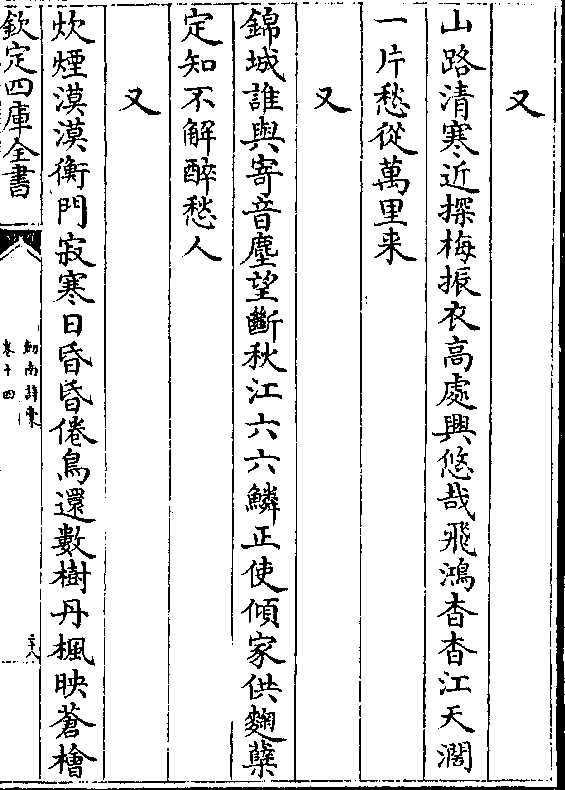 又
山路清寒近探梅振衣高處興悠哉飛鴻杳杳江天濶
一片愁從萬里來
又
錦城誰與寄音塵望斷秋江六六鱗正使傾家供麹櫱
定知不解醉愁人
又
炊煙漠漠衡門寂寒日昏昏倦鳥還數樹丹楓映蒼檜
欽定四庫全書
劎南詩稾
卷十四
二十八